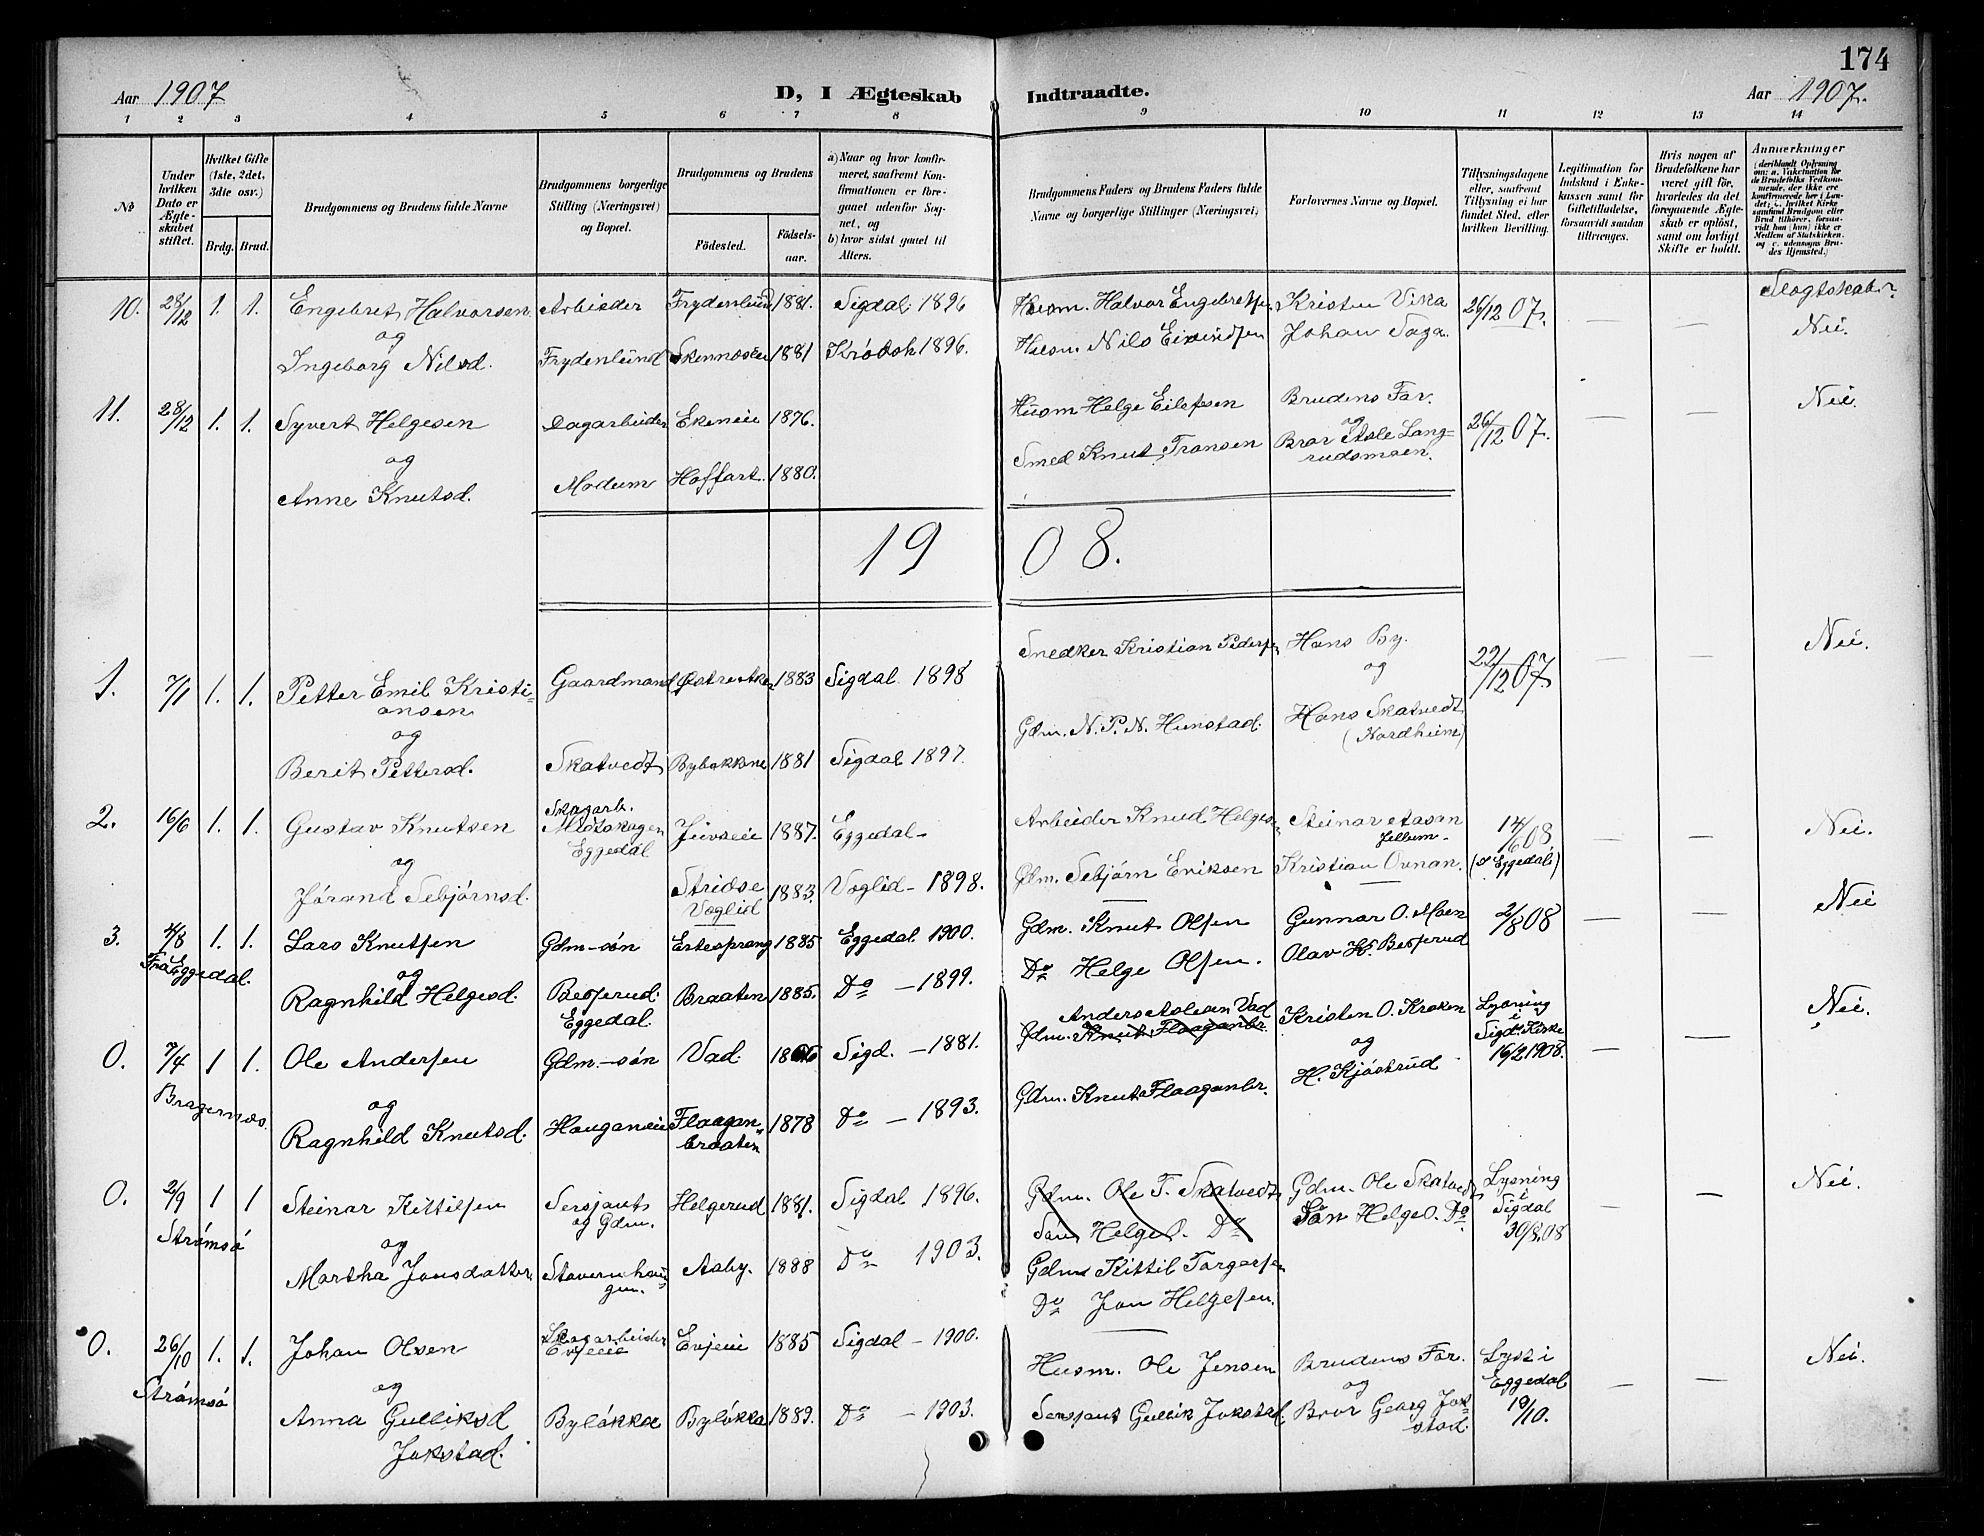 174
Aar 1907 D, I Ægteskab Indtraadte. Aar 1907.
1 2 3 4 5 6 7 8 9 10 11 12 13 14
No
Under hvilken Dato er Ægteskabet stiftet.
Hvilket Gifte (1ste, 2det, 3die osv.)
Brdg. Brud.
Brudgommens og Brudens fulde Navne
Brudgommens borgerlige Stilling (Næringsvei) og Bopæl.
Brudgommens og Brudens
Fødested. Fødselsaar.
a) Naar og hvor konfirmeret, saafremt Konfirmationen er foregaaet udenfor Sognet, og
b) hvor sidst gaaet til Alters.
Brudgommens Faders og Brudens Faders fulde Navne og borgerlige Stillinger (Næringsvei)
Forlovernes Navne og Bopæl.
Tillysningsdagene eller, saafremt Tillysning ei har fundet Sted, efter hvilken Bevilling.
Legitimation for Indskud i Enkekassen samt for Giftetilladelse, forsaavidt saadan tiltrænges.
Hvis nogen af Brudefolkene har været gift før, hvorledes da det foregaaende Ægteskab er opløst, samt om lovligt Skifte er holdt.
Anmærkninger
(deriblandt Oplysning om: a. Vakcination for de Brudefolks Vedkommende, der ikke ere konfirmerede her i Landet; b. hvilket Kirkesamfund Brudgom eller Brud tilhører, forsaavidt han (hun) ikke er Medlem af Statskirken, og c. udensogns Brudes Hjemsted.)
Slægtskab?
10. 28/12 1. 1. Engebret Halvorsen Arbeider Frydenlund 1881. Sigdal 1896 Husm. Halvor Engebretsen Kristen Vika 26/12 07. — — Nei.
og
Ingeborg Nilsd. Frydenlund Skennæseie 1881 Krødsh 1896. Husm. Nils Eivindsen Johan Saga.
11. 28/12 1. 1. Syvert Helgesen Dagarbeider Ekeneie 1876. Husm Helge Eilefsen Brudens Far. 26/12 07. — — Nei.
og og
Anne Knutsd. Modum Hoffart. 1880. Smed Knut Transen Bror Asle Langrudsmoen.
1908.
1. 7/1 1. 1. Petter Emil Kristiansen Gaardmand 1883 Sigdal 1898 Snedker Kristian Pedersen Hans By. 22/12 07. — — Nei.
og og
Berit Pettersd. Skatvedt Bybakkene 1881 Sigdal 1897. Gdm. N. P. N. Hunstad. Hans Skatvedt (Nordheim)
2. 16/6 1. 1. Gustav Knutsen Skogarb. Eggedal 1887. Eggedal- Arbeider Knud Helges. Steinar Aasen 14/6 08 (i Eggedal) — — Nei.
og
Jørand Sebjørnsd. Stridse Voglid 1883. Voglid - 1898. Gdm. Sebjørn Eriksen Kristian Ovnan.
3. 4/8 1. 1. Lars Knutsen Gdm-søn Ertesprang 1885 Eggedal 1900. Gdm. Knut Olsen Gunnar O. Moen 2/8 08 — — Nei
Fra Eggedal. og
Ragnhild Helgesd. Besserud. Eggedal. Braaten 1885. Do - 1899. Do Helge Olsen. Olav H. Besserud
0. 7/4 1 1. Ole Andersen Gdm-søn Vad. Sigd. - 1881. Gdm. Knut Flaaganbr. Anders Aslesen Vad Kristen O. Kroken Lysning i Sigd. Kirke 16/2 1908. — — Nei.
Bragernæs. og og
Ragnhild Knutsd. Hauganeie Flaaganbraaten 1878 Do - 1893. Gdm. Knut Flaaganbr. H. Kjøstrud
0. 2/9 1 1 Steinar Kittilsen Sersjant og Gdm. Helgerud 1881. Sigdal 1896. Gdm. Ole T. Skatvedt Gdm. Ole Skatvedt Lysning i Sigdal 30/8.08 — — Nei.
Strømsø Søn Helge O. Do Søn Helge O. Do.
og
Martha Jonsdatter. Stavernhaugen. Aaby. 1888 Do 1903. Gdm Kittil Torgersen
Do Jon Helgesen.
0. 26/10 1. 1. Johan Olsen Skogarbeider Evjeeie Evjeeie 1885 Sigdal - 1900. Husm. Ole Jensen Brudens Far. Lyst i Eggedal 19/10. — — Nei.
Strømsø og og
Anna Gulliksd Jokstad. Byløkka Byløkka 1889. Do - 1903. Sersjant Gullik Jokstad. Bror Georg Jokstad.